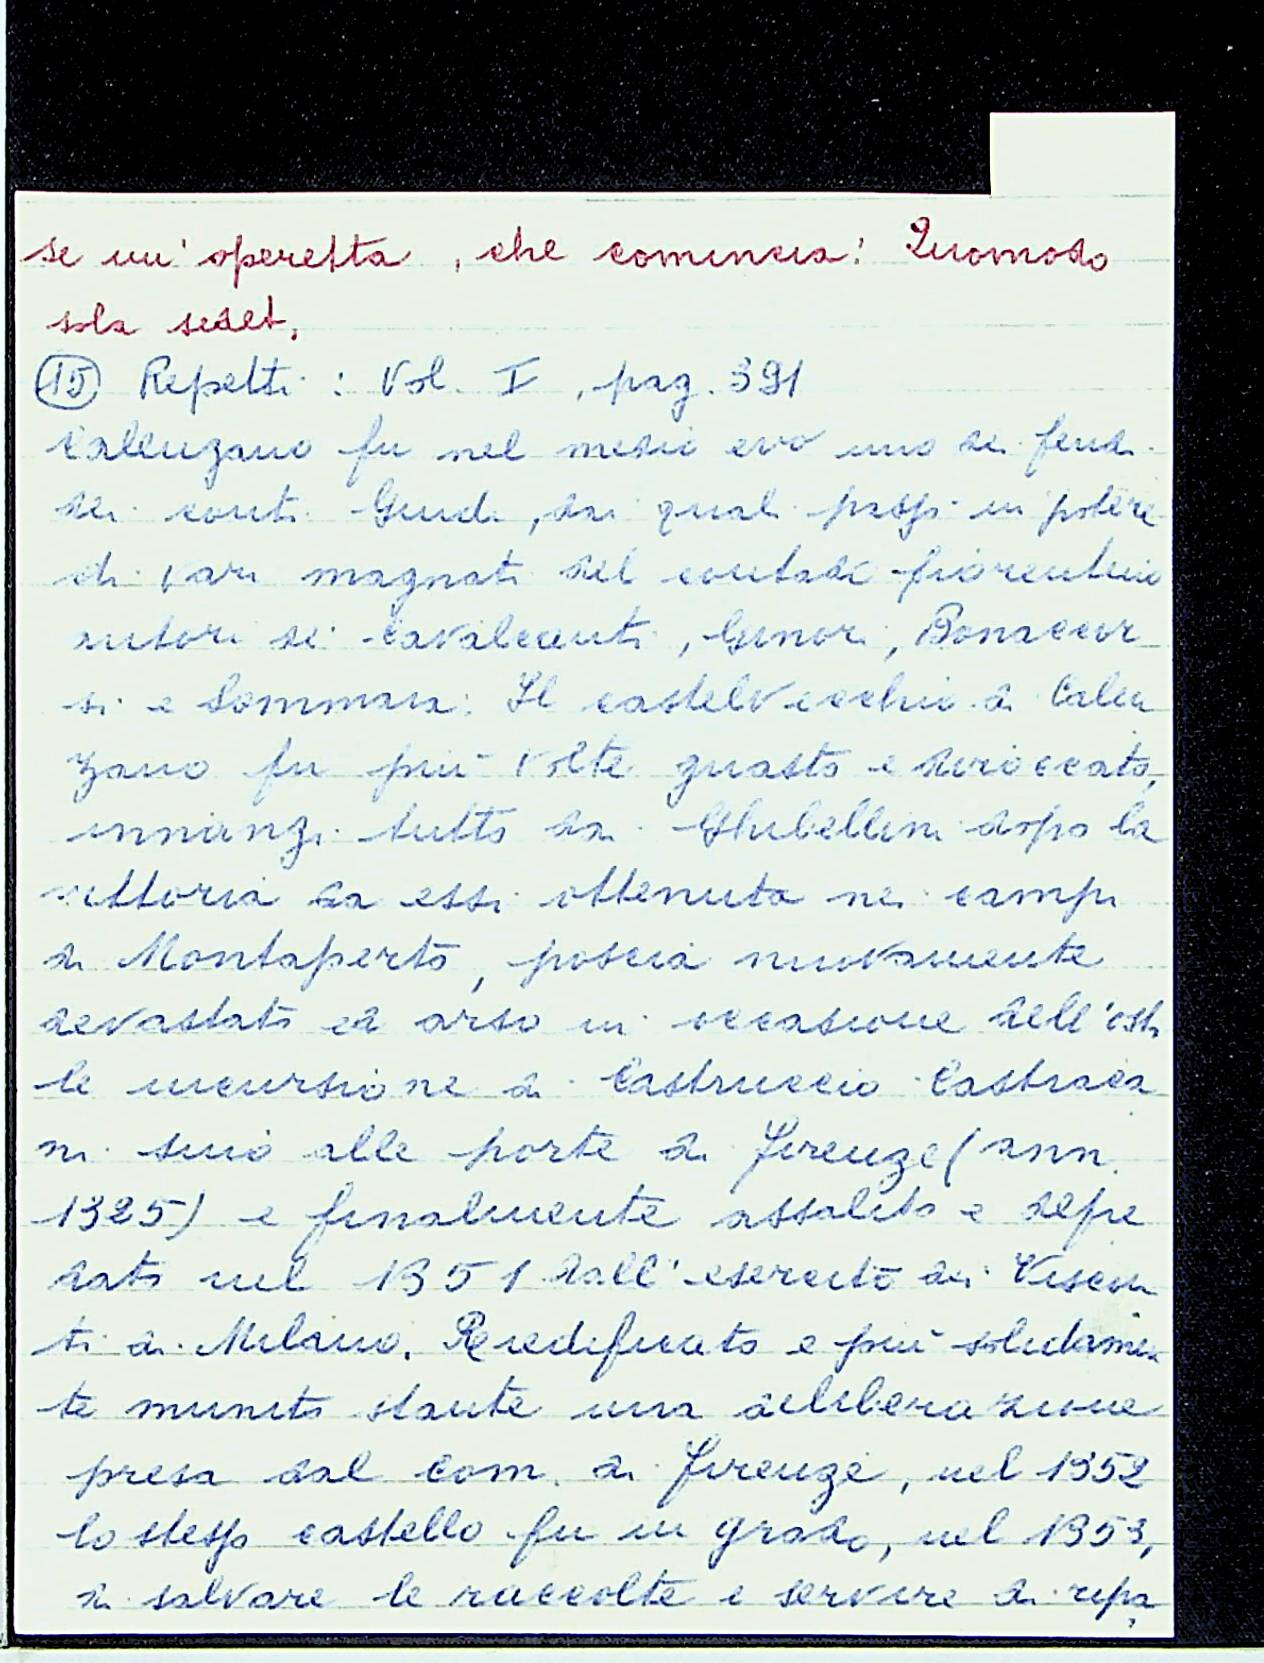 se un'operetta, che comincia: Quomodo
sola sedet,
(15) Repetti: Vol. I, pag. 391
Calenzano fu nel medio evo uno dei feudi
dei conti Guidi, dai quali passò in potere
di vari magnati del contado fiorentino
autori dei Cavalcanti, Ginori, Bonaccor
si e Sommaia: Il castelvecchio di Calen
zano fu più volte guasto e diroccato,
innanzi tutto dai Ghibellini dopo la
vittoria da essi ottenuta nei campi
di Montaperto, poscia nuovamente
devastato ed arso in occasione dell'osti
le incursione di Castruccio Castraca
ni sino alle porte di Firenze (ann.
1325) e finalmente assalito e depre
dato nel 1351 dall'esercito dei Viscon
ti di Milano. Riedificato e più solidamen
te munito stante una deliberazione
presa dal Com. di Firenze, nel 1352
lo stesso castello fu in grado, nel 1353,
di salvare le raccolte e servire di ripa